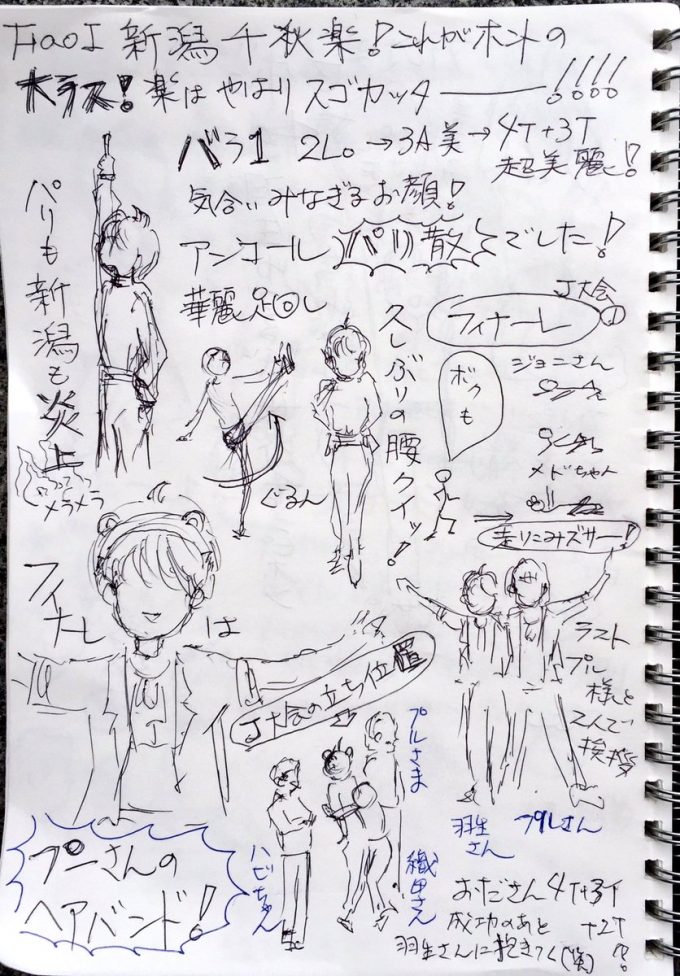 FaoI 新潟千秋楽！これがホントの
大ラス！楽は やはり スゴカッターー！！！！
バラ1 2Lo→3A美→4T+3T
超美麗！
気合いみなぎるお顔！
アンコール パリ散でした！
パリも新潟も炎上
メラメラ
華麗足回し
ぐるん
久しぶりの腰クイッ！
J大会
フィナーレ
ジョニさん
ボクも
メドちゃん
走りこみズサー！
フィナーレは
J大会の立ち位置
ラスト
プル
様と
2人で
挨拶
プルさま
羽生
さん
プルさん
プーさんの
ヘアバンド！
ハビちゃん
織田さん
おださん4T+3T
+2T
成功のあと
羽生さんに抱きてく(笑)